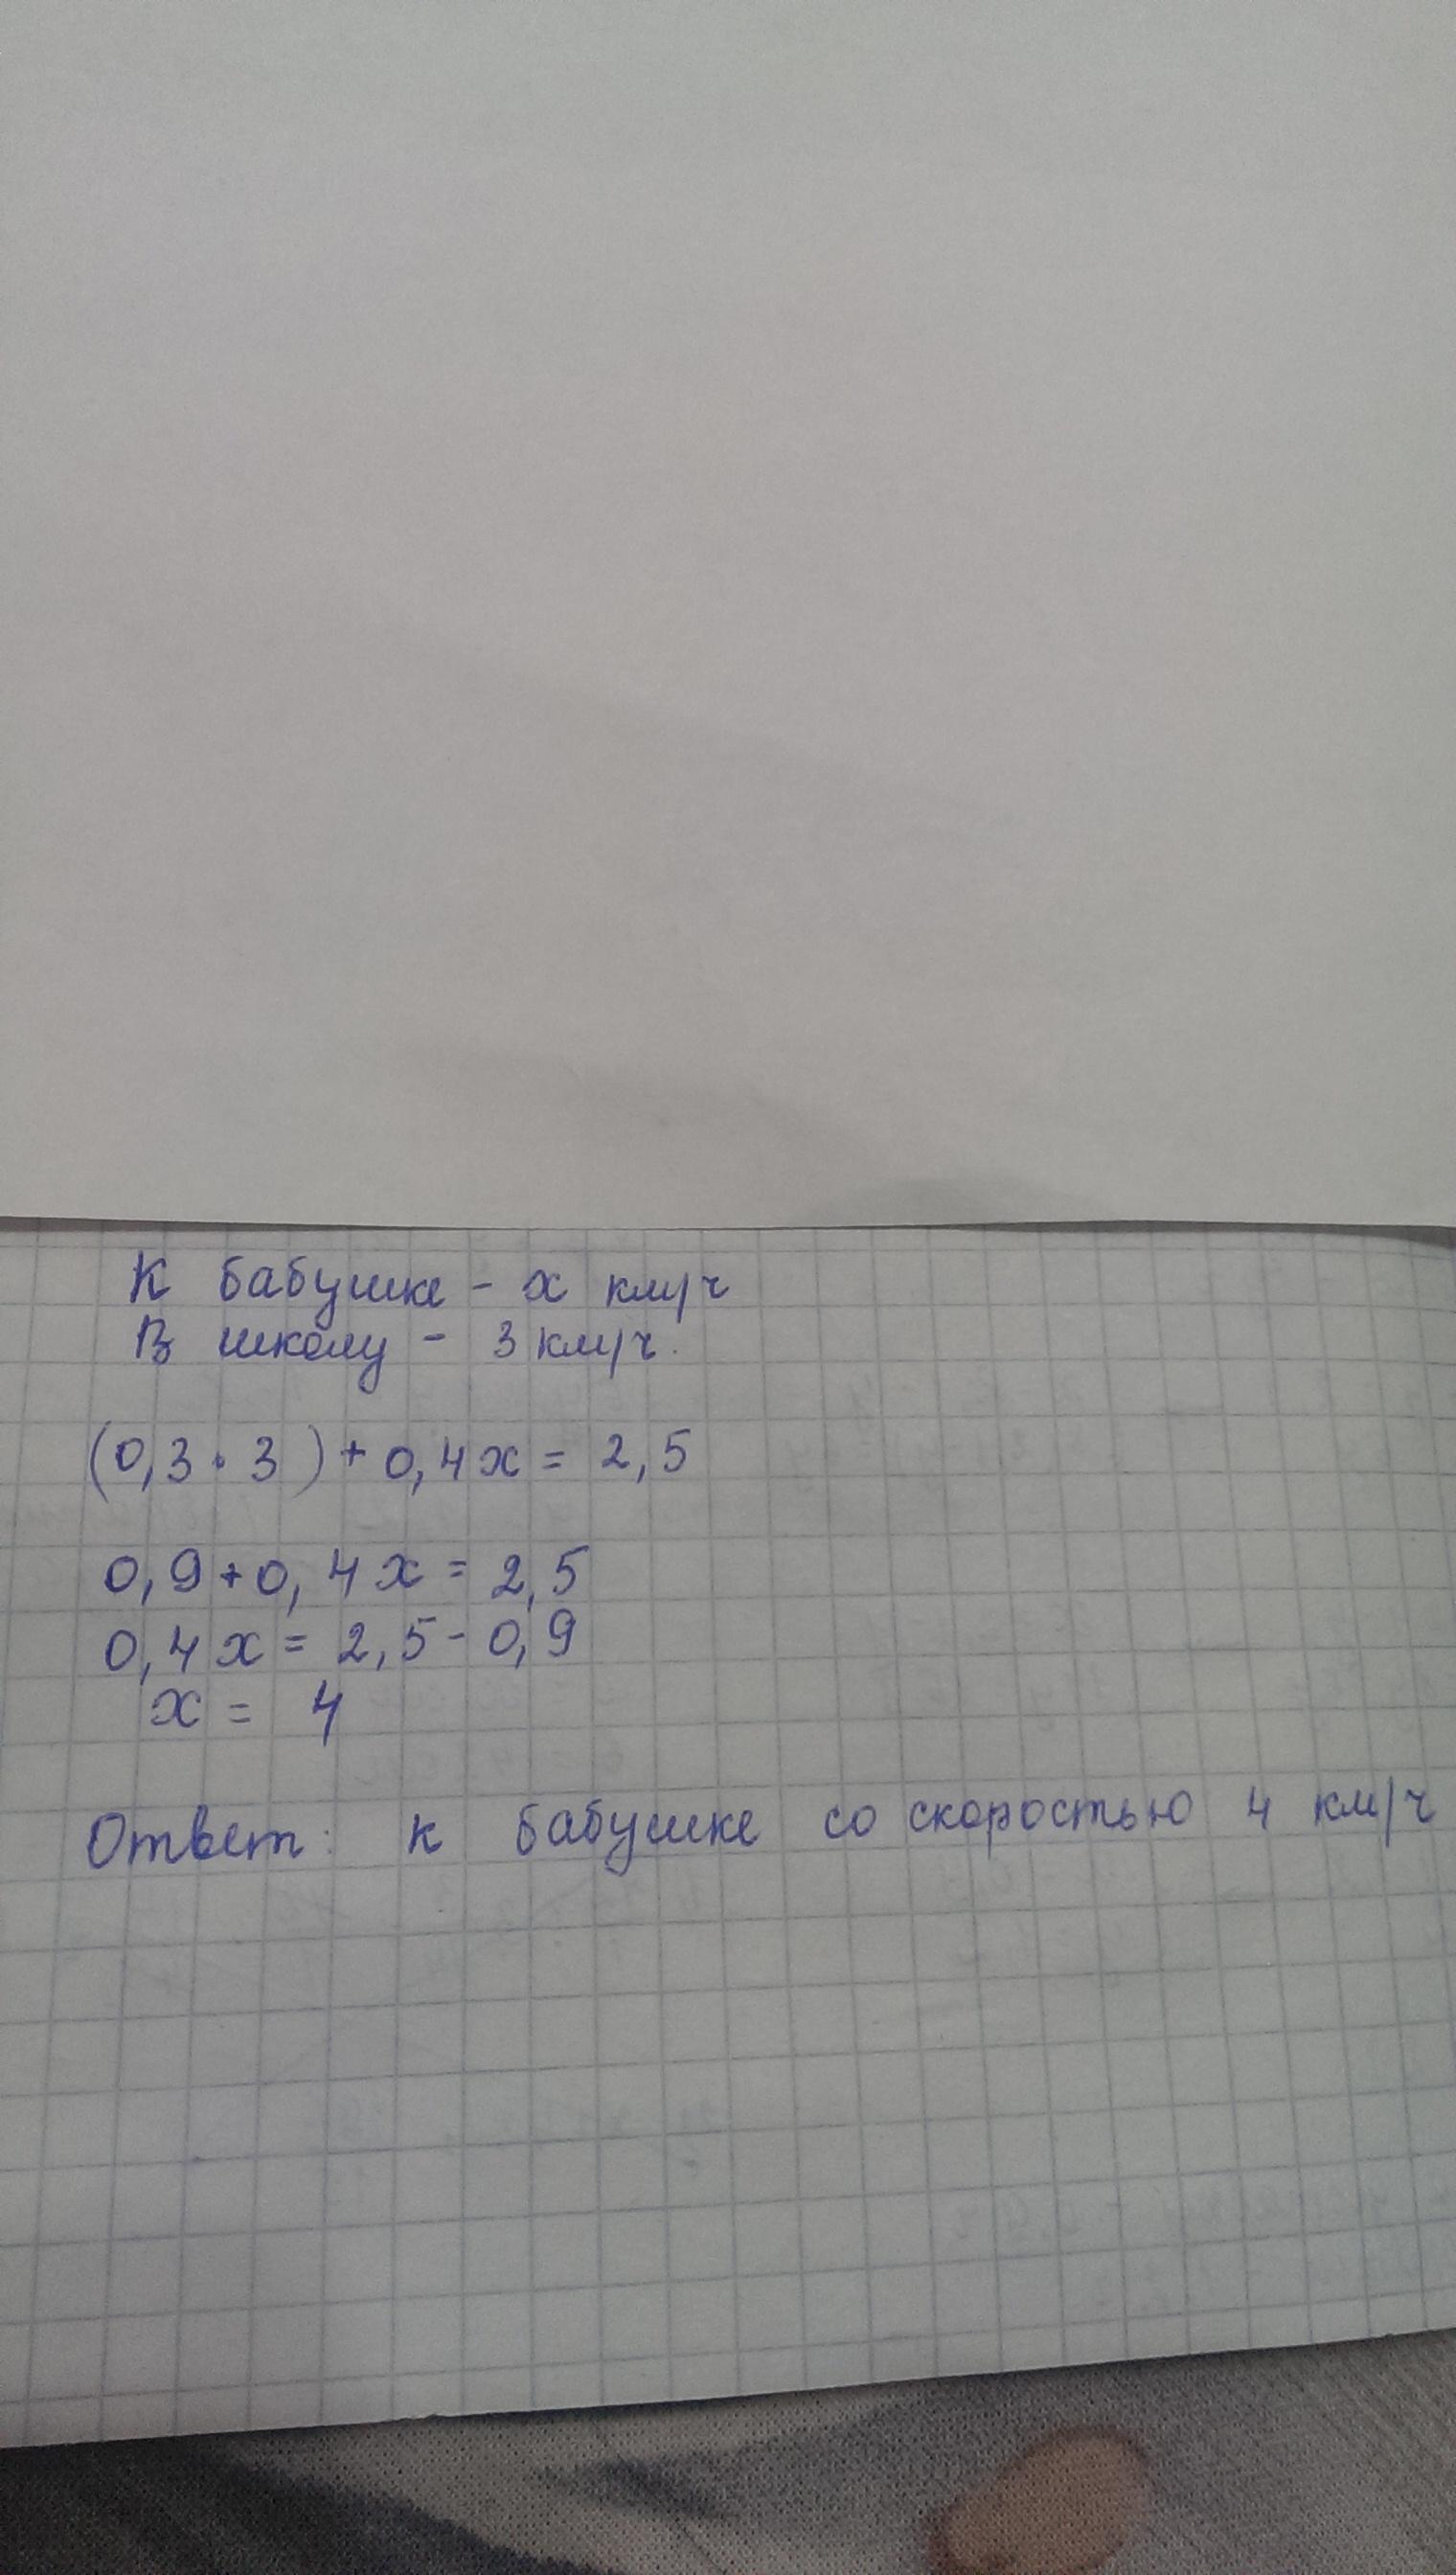 К бабушке - х км/ч
В школу - 3 км/ч.
(0,3 · 3) + 0,4х = 2,5
0,9 + 0,4х = 2,5
0,4х = 2,5 - 0,9
х = 4
Ответ: к бабушке со скоростью 4 км/ч